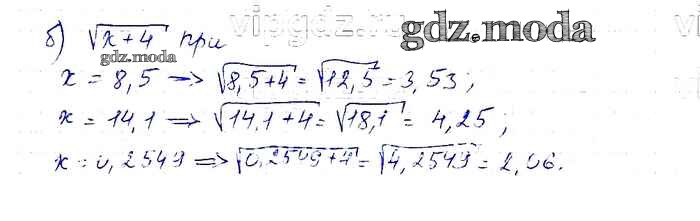 vipgdz.ru
б) √(x+4) при
gdz.moda
gdz.moda
x = 8,5 => √(8,5+4) = √12,5 = 3,53;
x = 14,1 => √(14,1+4) = √18,1 = 4,25;
x = 0,2549 => √(0,2549+4) = √4,2549 = 2,06.